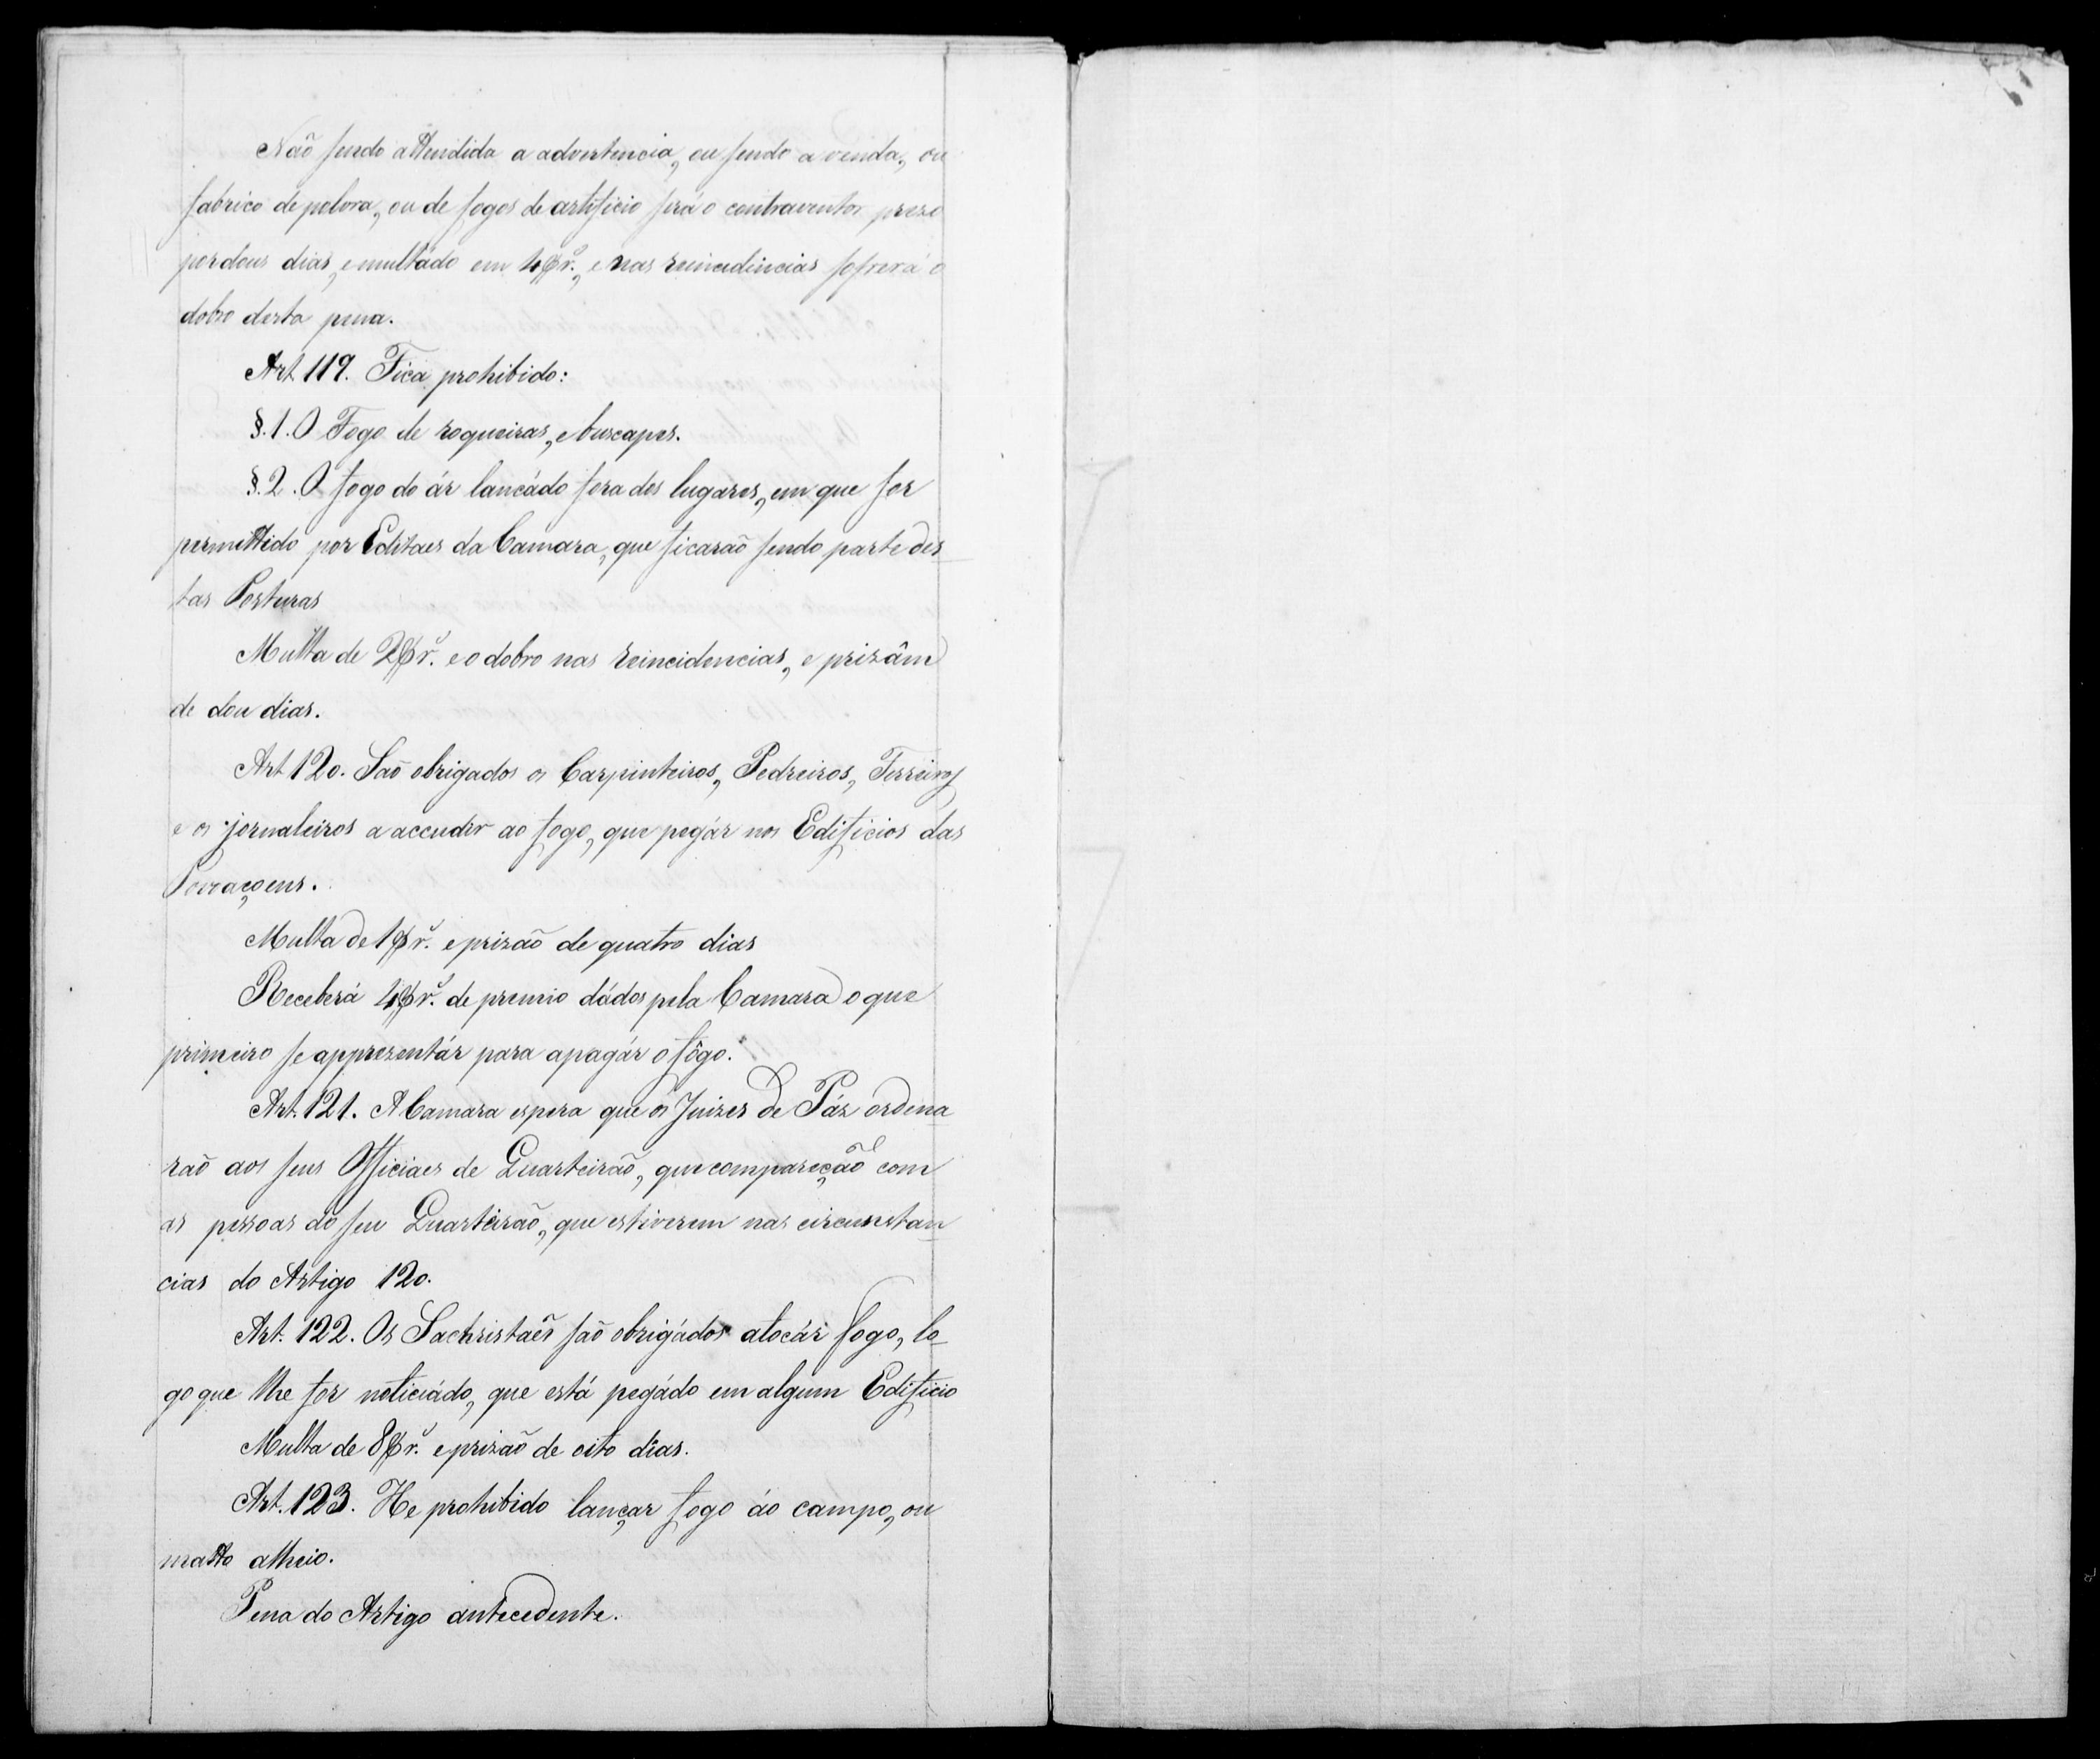 Não sendo attendida a advertencia, ou sendo a venda, ou
fabrico de polvra, ou de fogos de artificio será o contraventor prezo
por dous dias, e multádo em 4$r.s, e nas reincidincias sofrerá o
dobro desta pena.
Art. 119. Fica prohibido:
§.1. O Fogo de roqueiras, e buscapes.
§.2. O fogo do ár lancádo fora dos lugares, em que for
permettido por Editaes da Camara, que ficaraõ sendo parte des
tas Posturas
Multa de 2$r.s e o dobro nas reincidencias, e prizâm
de dou dias.
Art. 120. Saõ obrigados os Carpinteiros, Pedreiros, Ferreiros
e os jornaleiros a accudir ao fogo, que pegár nos Edificios das
Povaçoens.
Multa de 1$r.s e prizaõ de quatro dias
Receberá 4$r.s de premio dádos pela Camara o que
primeiro se apprezentár para apagár o fôgo.
Art. 121. A Camara espera que os Juizes de Páz ordena
raõ aos seus Officiaes de Quarteiraõ, que compareçaõ com
as pessoas do seu Quarteiraõ, que estiverem nas circunstan
cias do Artigo 120.
Art. 122. Os Sachristaẽs saõ obrigádos a tocár fogo, lo_
go que lhe for noticiádo, que está pegádo em algum Edificio
Multa de 8$r.s e prizaõ de oito dias.
Art. 123. He prohibido lançar fogo áo campo, ou
matto alheio.
Pena do Artigo antecedente.